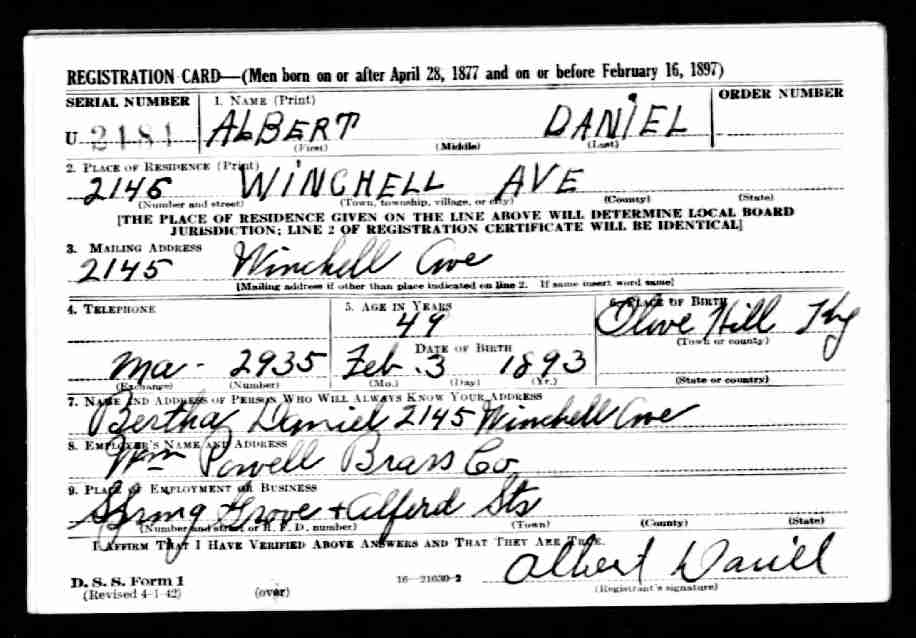 REGISTRATION CARD—(Men born on or after April 28, 1877 and on or before February 16, 1897)
SERIAL NUMBER 1. NAME (Print) ORDER NUMBER
U 2484 ALBERT DANIEL
(First) (Middle) (Last)
2. PLACE OF RESIDENCE (Print)
2145 WINCHELL AVE
(Number and street) (Town, township, village, or city) (County) (State)
[THE PLACE OF RESIDENCE GIVEN ON THE LINE ABOVE WILL DETERMINE LOCAL BOARD
JURISDICTION; LINE 2 OF REGISTRATION CERTIFICATE WILL BE IDENTICAL]
3. MAILING ADDRESS
2145 Winchell Ave
[Mailing address if other than place indicated on line 2. If same insert word same]
4. TELEPHONE 5. AGE IN YEARS 6. PLACE OF BIRTH
49 Olive Hill Ky
DATE OF BIRTH (Town or county)
Ma - 2935 Feb. 3 1893
(Exchange) (Number) (Mo.) (Day) (Yr.) (State or country)
7. NAME AND ADDRESS OF PERSON WHO WILL ALWAYS KNOW YOUR ADDRESS
Bertha Daniel 2145 Winchell Ave
8. EMPLOYER'S NAME AND ADDRESS
Wm Powell Brass Co
9. PLACE OF EMPLOYMENT OR BUSINESS
Spring Grove + Alferd Sts
(Number and street or R. F. D. number) (Town) (County) (State)
I AFFIRM THAT I HAVE VERIFIED ABOVE ANSWERS AND THAT THEY ARE TRUE.
D. S. S. Form 1 Albert Daniel
(Revised 4-1-42) (over) 16—21630-2 (Registrant's signature)